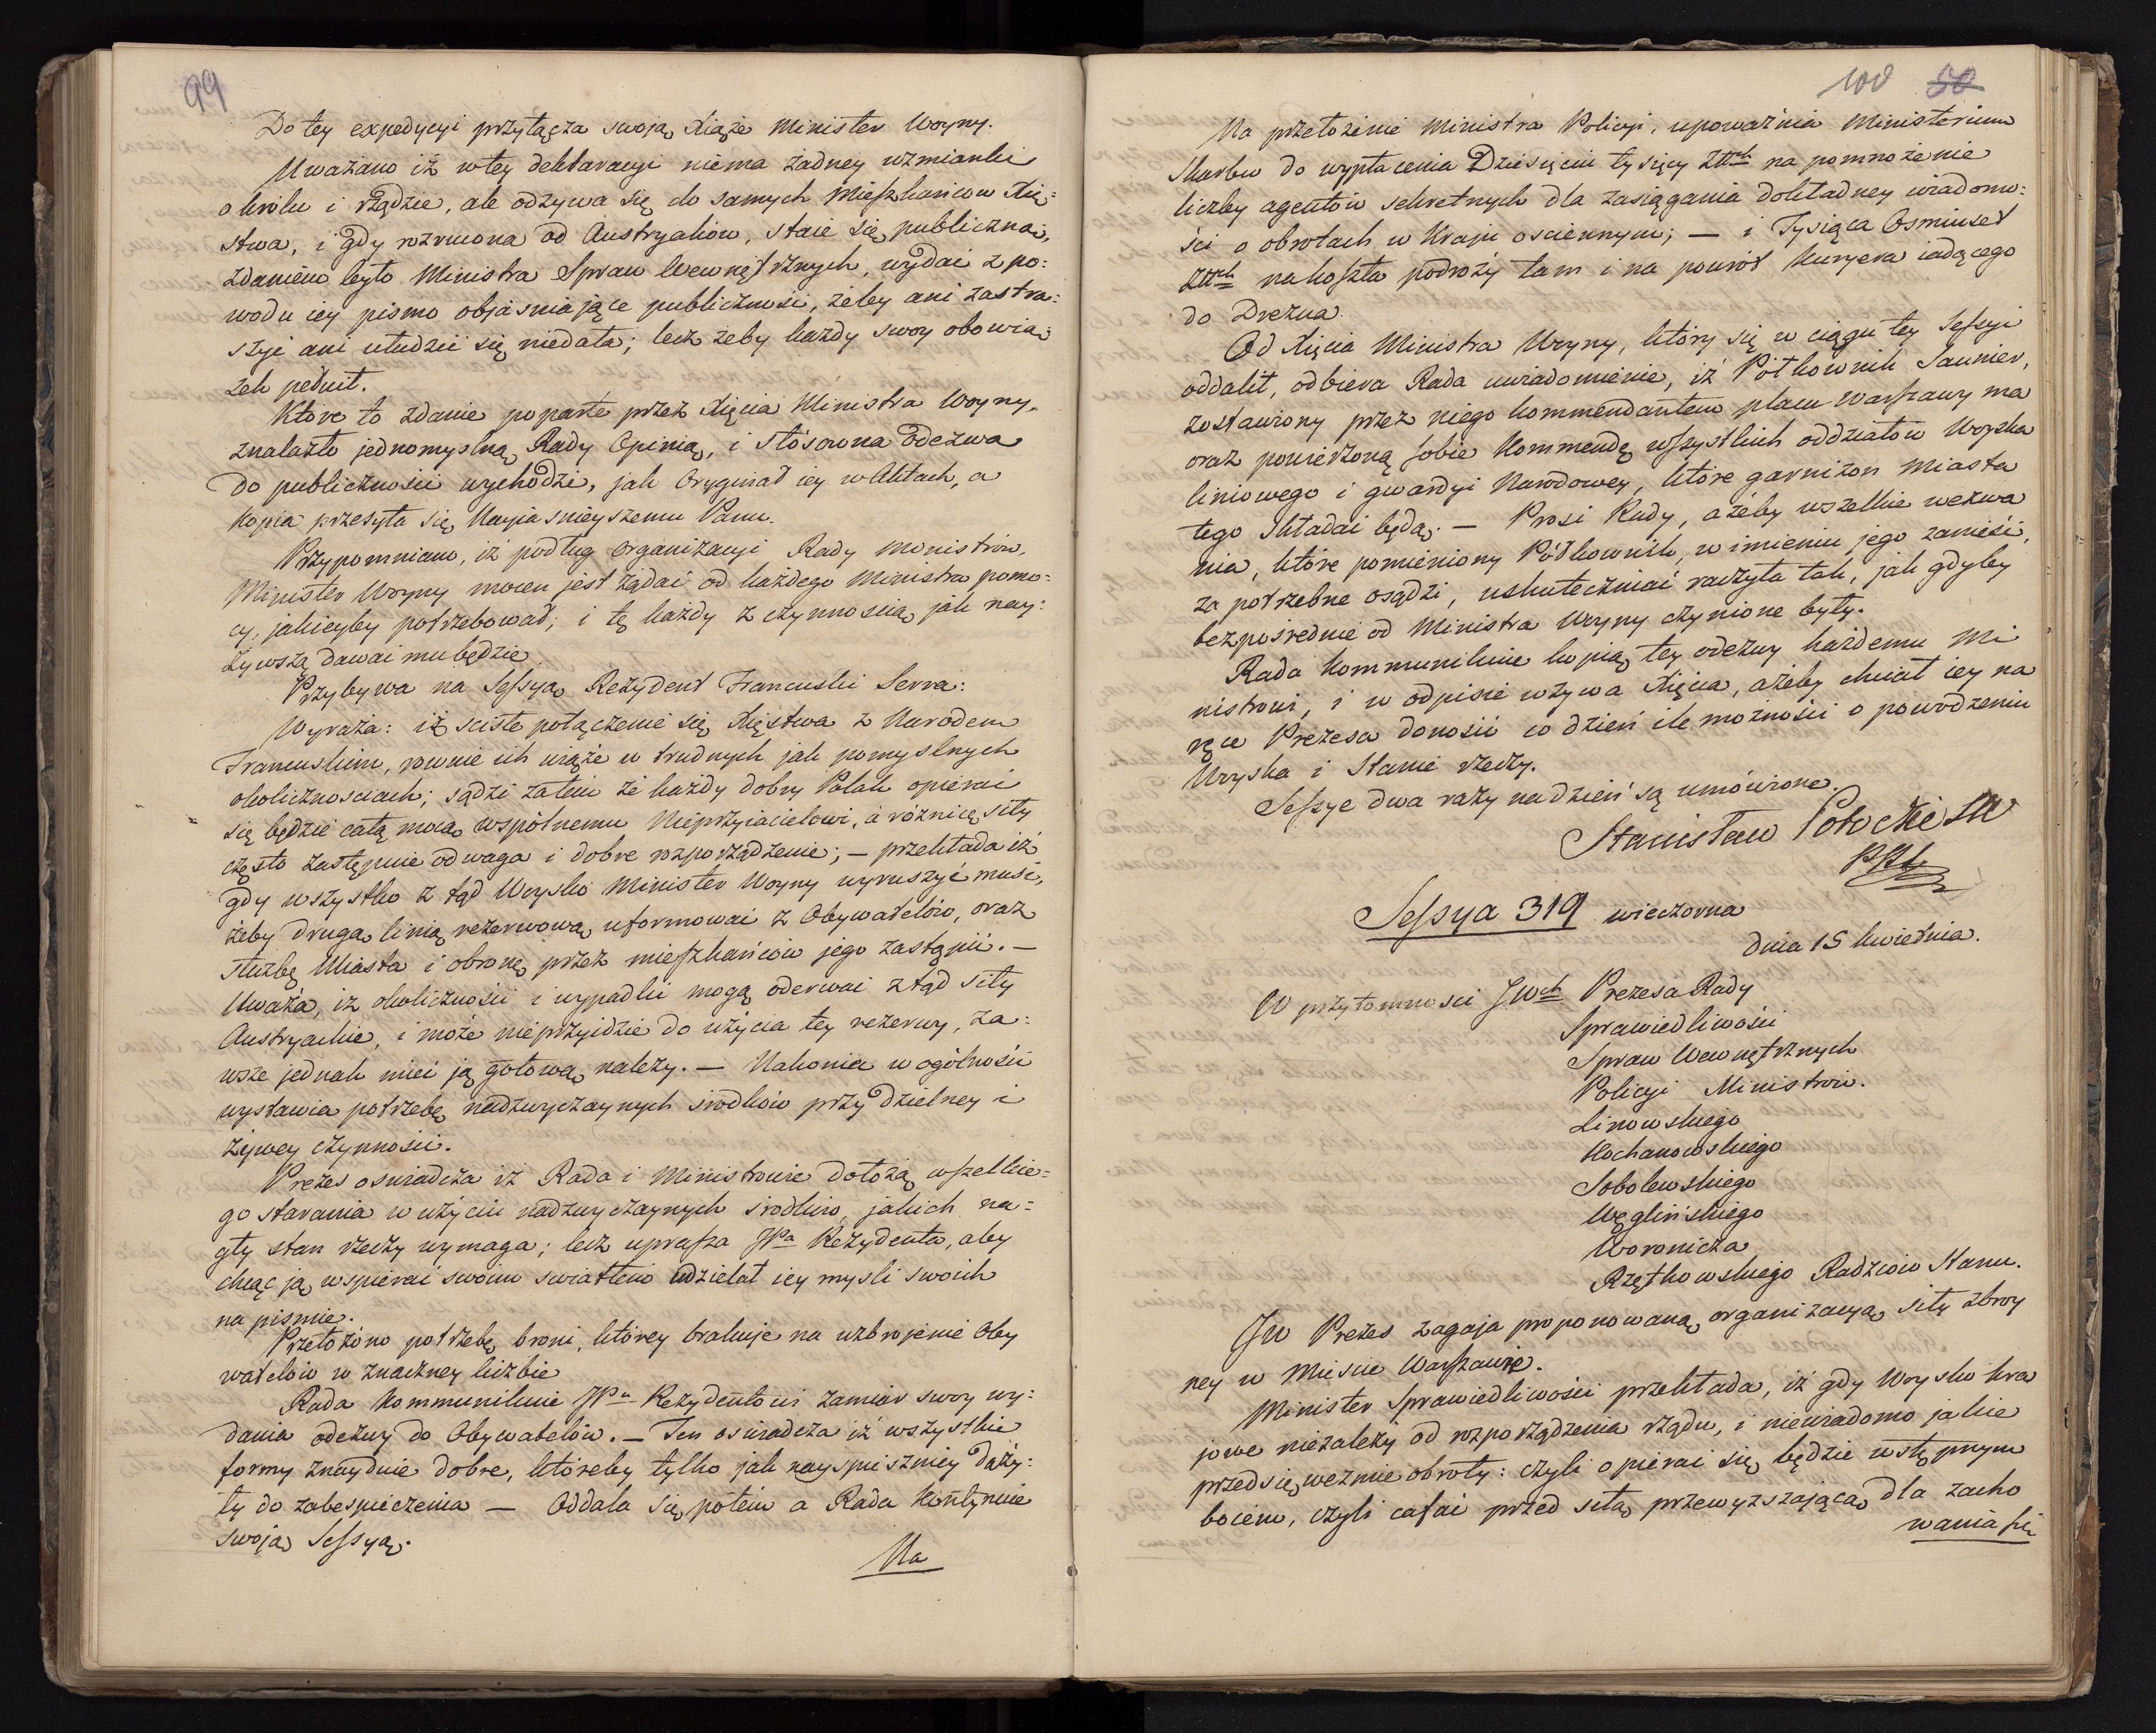 99
Do tey expedycyi przyłącza swoją Xiąże Minister Woyny.
Uważano iż w tey deklaracyi niema żadney wzmianki
o królu i rządzie, ale odzywa się do samych Mieszkańcow Xię=
stwa, i gdy rozrucona od Austryakow, staie się publiczną,
zdaniem było Ministra Spraw Wewnętrznych, wydać z po:
wodu iey pismo objaśniające publiczność, żeby ani zastra:
szyć ani ułudzić się niedała; lecz żeby każdy swoy obowią:
zek pełnił.
Które to zdanie poparte przez Xięcia Ministra Woyny,
znalazło jednomyslną Rady Opinią, i stósowna odezwa
do publiczności wychodzi, jak Oryginał iey w Aktach, a
kopia przesyła się Nayjaśnieyszemu Panu.
Przypomniano, iż podług Organizacyi Rady Ministrow,
Minister Woyny mocen jest żądać od każdego Ministra pomo:
cy, jakieyby potrzebował; i tę każdy z czynnością jak nay:
żywszą dawać mu będzie
Przybywa na Sessyą Rezydent Francuski Serra:
Wyraża: iż sciste połączenie się Xięstwa z Narodem
Francuskim, rownie ich wiąże w trudnych jak pomyslnych
okolicznosciach; sądzi zatem że każdy dobry Polak opierać
się będzie całą mocą wspólnemu Nieprzyiacielowi, a różnicę siły
często zastępuie odwaga i dobre rozporządzenie; — przekłada iż
gdy wszystko z tąd Woysko Minister Woyny wyruszyć musi,
żeby drugą linią rezerwową uformować z Obywatelów, oraz
służbę Miasta i obronę przez mieszkańców jego zastąpić. —
Uważa, iż okoliczności i wypadki mogą oderwać z tąd siły
Austryackie, i może nieprzyidzie do użycia tey rezerwy, za:
wsze jednak mieć ją gotową należy. — Nakoniec w ogólności
wystawia potrzebę nadzwyczaynych srodków przy dzielney i
żywey czynności.
Prezes oswiadcza iż Rada i Ministrowie dołożą wszelkie=
go starania w użyciu nadzwyczaynych srodków, jakich na=
gły stan rzeczy wymaga; lecz uprasza JPa Rezydenta, aby
chcąc ją wspierać swoim swiatłem udzielał iey mysli swoich
na pismie.
Przełożono potrzebę broni, którey brakuje na uzbrojenie Oby
watelów w znaczney liczbie
Rada kommunikuie JPu Rezydentowi zamiar swoy wy:
dania odezwy do Obywatelów. — Ten oswiadcza iż wszystkie
formy znayduie dobre, któreby tylko jak nayspieszniey dąży:
ły do zabespieczenia — Oddala się potem a Rada kontynuie
swoją Sessyą.
Na
100 50
Na przełożenie Ministra Policyi, upoważnia Ministerium
Skarbu do wypłacenia Dziesięciu tysięcy Złtch na pomnożenie
liczby agentów sekretnych dla zasięgania dokładney wiadomo:
ści o obrotach w Kraju osciennym; — i Tysiąca Osmiuset
złtch na koszta podroży tam i na powrót Kuryera iadącego
do Drezna.
Od Xięcia Ministra Woyny, który się w ciągu tey Sessyi
oddalił, odbiera Rada uwiadomienie, iż Półkownik Saunier,
zostawiony przez niego kommendantem placu Warszawy ma
oraz powierzoną sobie Kommendę wszystkich oddziałów Woyska
liniowego i gwardyi Narodowey, które garnizon Miasta
tego składać będą. — Prosi Rady, ażeby wszelkie wezwa
nia, które pomieniony Półkownik, w imieniu jego zanieść,
za potrzebne osądzi, uskuteczniać raczyła tak, jak gdyby
bezpośrednie od Ministra Woyny czynione były.
Rada kommunikuie kopią tey odezwy każdemu Mi
nistrowi, i w odpisie wzywa Xięcia, ażeby chciał iey na
ręce Prezesa donosić co dzień ile możności o powodzeniu
Woyska i Stanie rzeczy.
Sessye dwa razy na dzień są umówione.
Stanisław Potocki
Sessya 319 wieczorna
dnia 15 kwietnia.
W przytomnosci JWch Prezesa Rady
Sprawiedliwości
Spraw Wewnętrznych
Policyi Ministrów.
Linowskiego
Kochanowskiego
Sobolewskiego
Węglińskiego
Woronicza
Rzętkowskiego Radzców Stanu.
JW Prezes zagaja proponowaną organizacyą siły zbroy
ney w Miescie Warszawie.
Minister Sprawiedliwości przekłada, iż gdy Woysko kra
jowe niezależy od rozporządzenia rządu, i niewiadomo jakie
przedsięweźmie obroty: czyli opierać się będzie wstępnym
boiem, czyli cofać przed siłą przewyższającą dla zacho
wania się